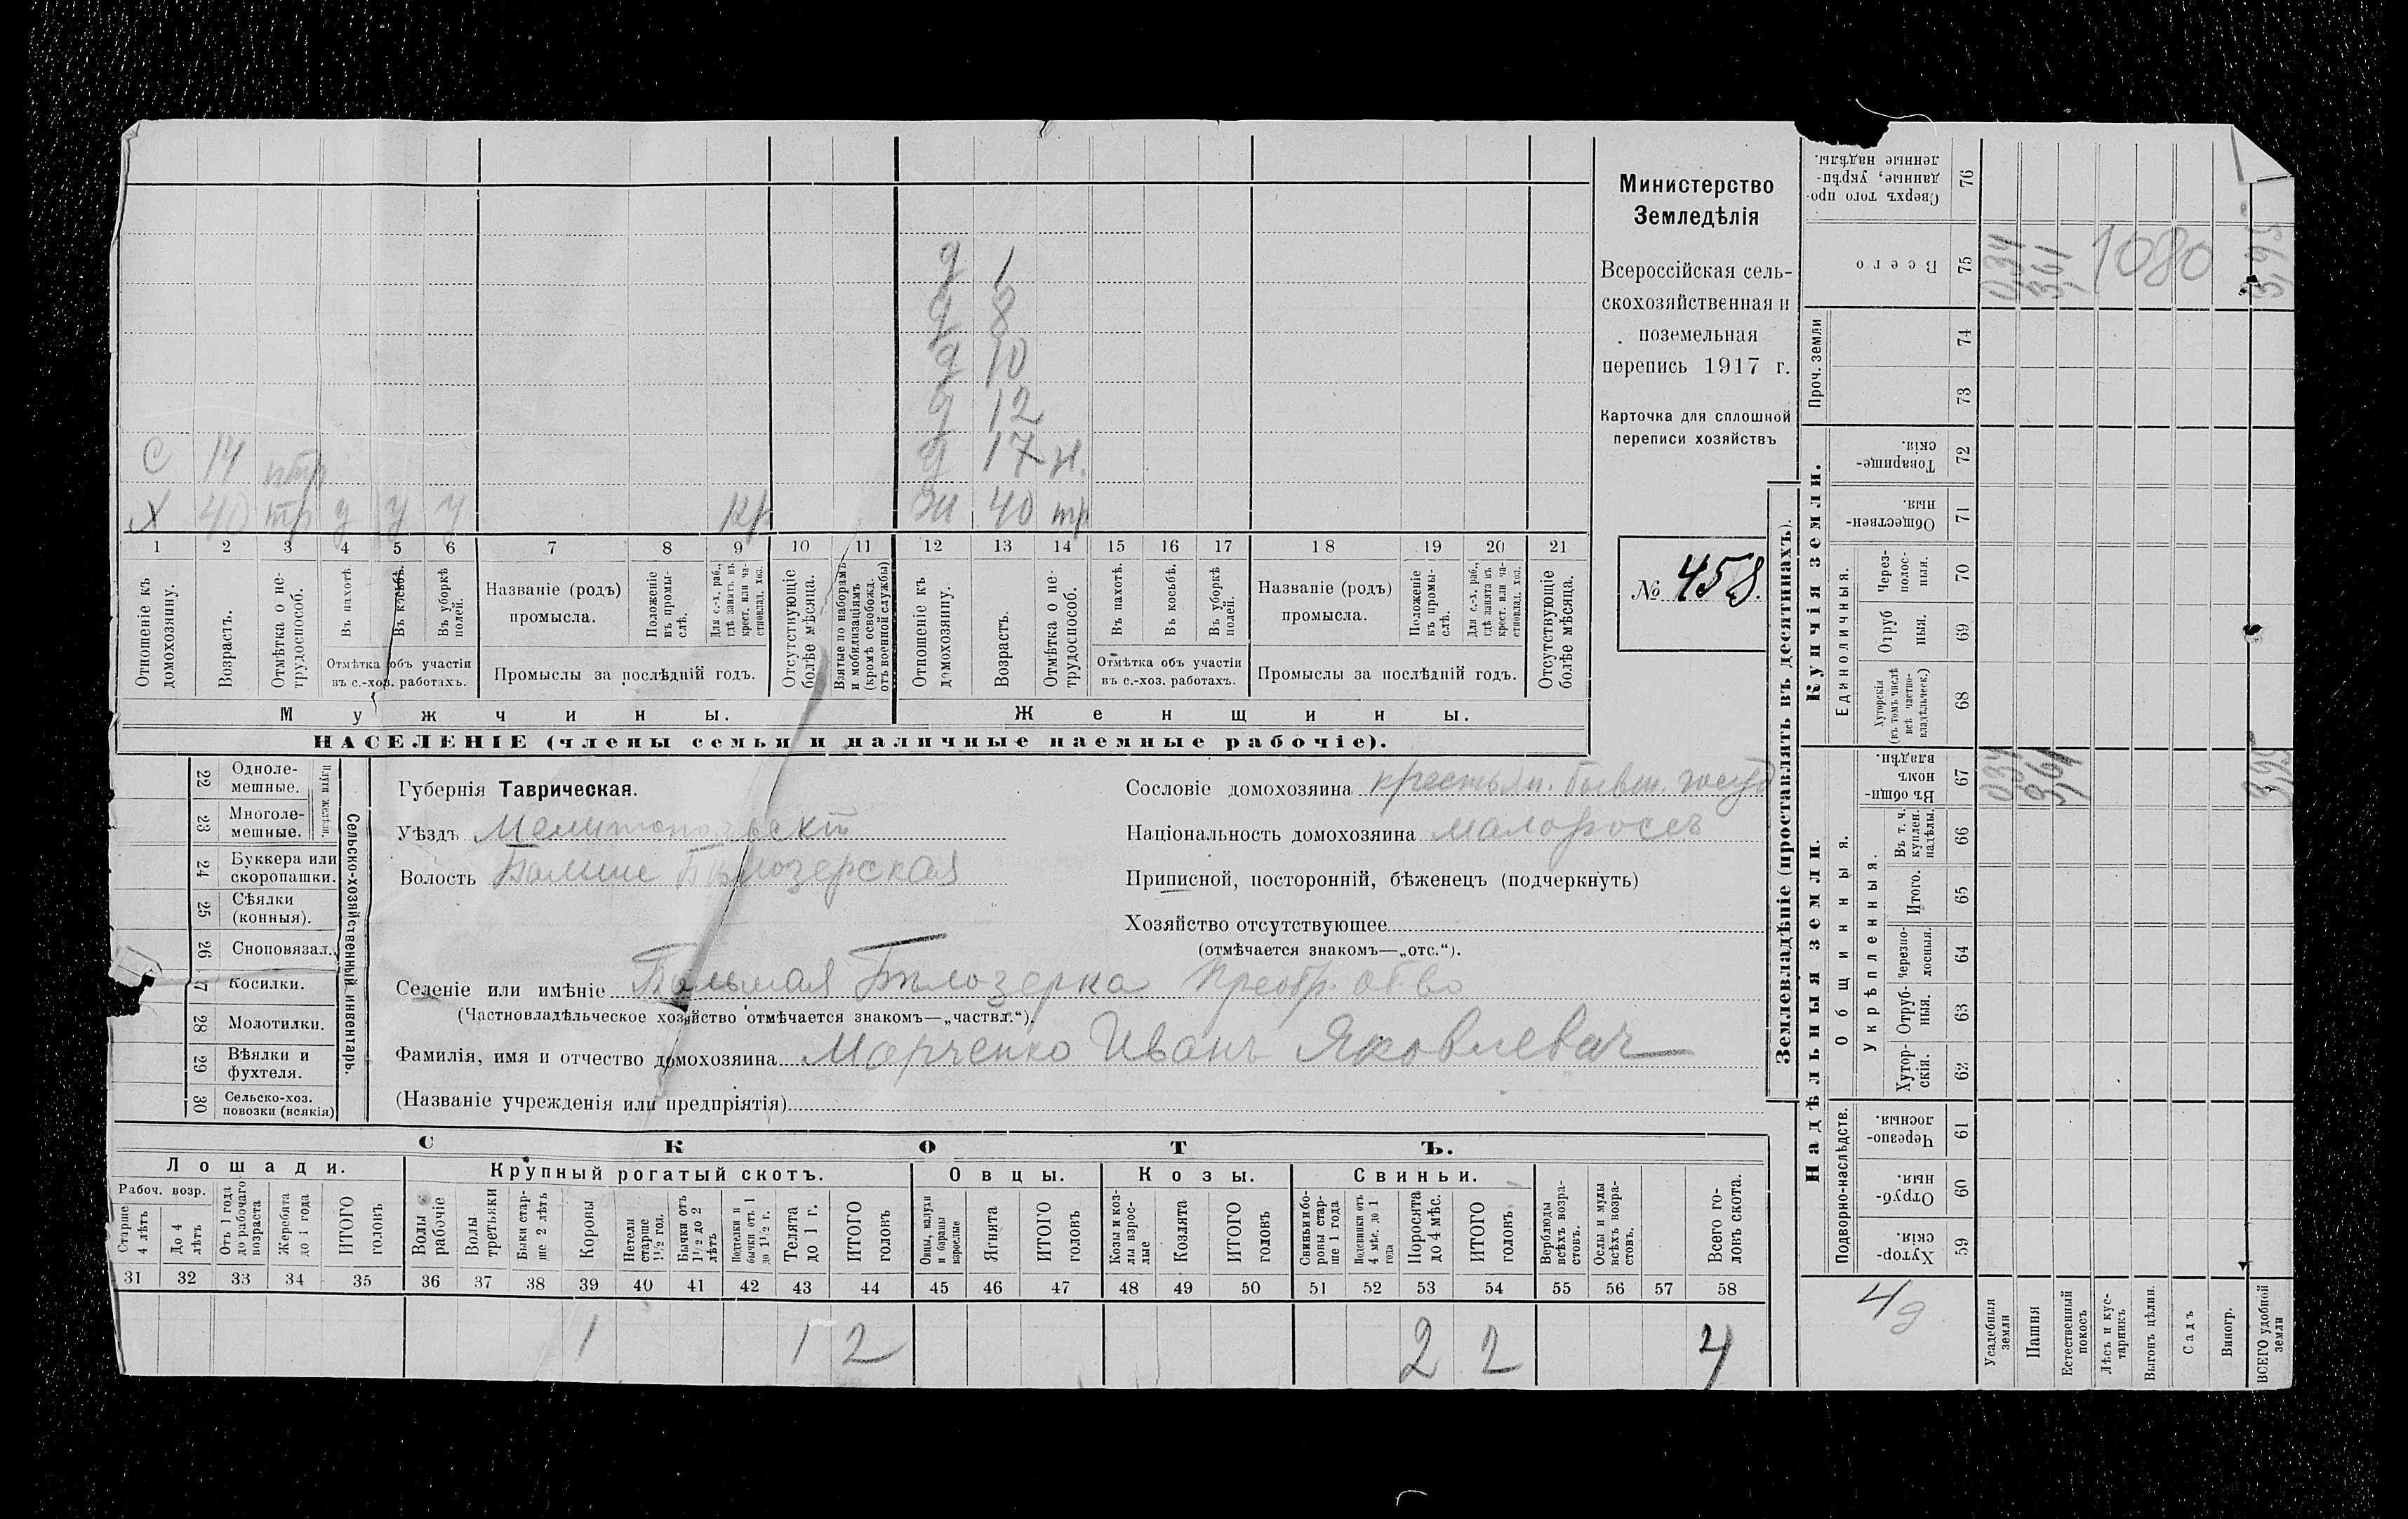 Министерство
Земледѣлія
Всероссійская сель-
скохозяйственная и
поземельная
перепись 1917 г.
Карточка для сплошной
переписи хозяйствъ
№ 458.
д 1
д 8
д 10
д 12
С 14 птр д 17 н.
Х 40 тр у у у кр ж 40 тр
1 2 3 4 5 6 7 8 9 10 11 12 13 14 15 16 17 18 19 20 21
Отношеніе къ домохозяину.
Возрастъ.
Отмѣтка о не-трудоспособ.
Въ пахотѣ.
Въ косьбѣ.
Въ уборкѣ полей.
Отмѣтка объ участіи въ с.-хоз. работахъ.
Названіе (родъ) промысла.
Положеніе въ промы-слѣ.
Для с.-х. раб., гдѣ занятъ въ крест. или ча-стновлад. хоз.
Промыслы за послѣдній годъ.
Отсутствующіе болѣе мѣсяца.
Взятые по наборамъ и мобилизаціямъ (кромѣ освобожд. отъ военной службы)
Отношеніе къ домохозяину.
Возрастъ.
Отмѣтка о не-трудоспособ.
Въ пахотѣ.
Въ косьбѣ.
Въ уборкѣ полей.
Отмѣтка объ участіи въ с.-хоз. работахъ.
Названіе (родъ) промысла.
Положеніе въ промы-слѣ.
Для с.-х. раб., гдѣ занята въ крест. или ча-стновлад. хоз.
Промыслы за послѣдній годъ.
Отсутствующіе болѣе мѣсяца.
Мужчины.
Женщины.
НАСЕЛЕНІЕ (члены семьи и наличные наемные рабочіе).
22 Одноле-мешные.
23 Многоле-мешные.
24 Буккера или скоропашки.
25 Сѣялки (конныя).
26 Сноповязал.
7 Косилки.
28 Молотилки.
29 Вѣялки и фухтеля.
30 Сельско-хоз. повозки (всякія)
Сельско-хозяйственный инвентарь.
Губернія Таврическая.
Уѣздъ Мелитопольскій
Волость Больше Бѣлозерская
Сословіе домохозяина крестьян. бывш. госуд
Національность домохозяина малороссъ
Приписной, посторонній, бѣженецъ (подчеркнуть)
Хозяйство отсутствующее
(отмѣчается знакомъ—„отс.“).
Селеніе или имѣніе Большая Бѣлозерка Преобр. об-во
(Частновладѣльческое хозяйство отмѣчается знакомъ—„частвл.“).
Фамилія, имя и отчество домохозяина Марченко Иванъ Яковлевич
(Названіе учрежденія или предпріятія)
СКОТЪ.
Лошади.
Рабоч. возр.
Старше 4 лѣтъ
До 4 лѣтъ
Отъ 1 года до рабочаго возраста
Жеребята до 1 года
ИТОГО головъ
Крупный рогатый скотъ.
Волы рабочіе
Волы третьяки
Быки стар-ше 2 лѣтъ
Коровы
Нетели старше 1½ год.
Бычки отъ 1½ до 2 лѣтъ
Подтелки и бычки отъ 1 до 1½ г.
Телята до 1 г.
ИТОГО головъ
Овцы.
Овцы, валухи и бараны взрослые
Ягнята
ИТОГО головъ
Козы.
Козы и коз-лы взрос-лые
Козлята
ИТОГО головъ
Свиньи.
Свиньи и бо-ровы стар-ше 1 года
Подсвинки отъ 4 мѣс. до 1 года
Поросята до 4 мѣс.
ИТОГО головъ
Верблюды всѣхъ возра-стовъ.
Ослы и мулы всѣхъ возра-стовъ.
Всего го-ловъ скота.
31 32 33 34 35 36 37 38 39 40 41 42 43 44 45 46 47 48 49 50 51 52 53 54 55 56 57 58
1 1 2 2 2 4
Землевладѣніе (проставлять въ десятинахъ).
Надѣльныя земли.
Подворно-наслѣдств.
Хутор-скія. 59
Отруб-ныя. 60
Черезпо-лосныя 61
Общинныя.
Укрѣпленныя.
Хутор-скія. 62
Отруб-ныя. 63
Черезпо-лосныя. 64
Итого. 65
Въ т. ч. куплен. надѣлы. 66
Въ общи-номъ владѣн. 67 034 361 395
Купчія земли.
Единоличныя.
Хуторскія (въ томъ числѣ всѣ частно-владѣльческ.) 68
Отруб ныя. 69
Через-полос-ныя. 70
Обществен-ныя. 71
Товарище-скія. 72
Проч. земли 73 74
Всего 75 0,34 3,61 1080 3,95
Сверхъ того про-данные, укрѣп-ленные надѣлы. 76
4д
Усадебныя земли
Пашня
Естественный покосъ
Лѣсъ и кус-тарникъ
Выгонъ цѣлин.
Садъ
Виногр.
ВСЕГО удобной земли